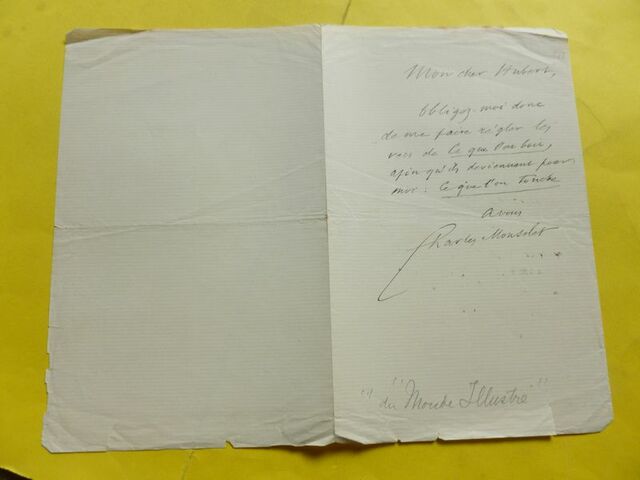 Mon cher Hubert,
Obligez-moi donc
de me faire régler les
vers de Ce que l'on boit,
afin qu'ils deviennent pour
moi : Ce que l'on Touche
à vous
Charles Monselet
"du Monde Illustré"